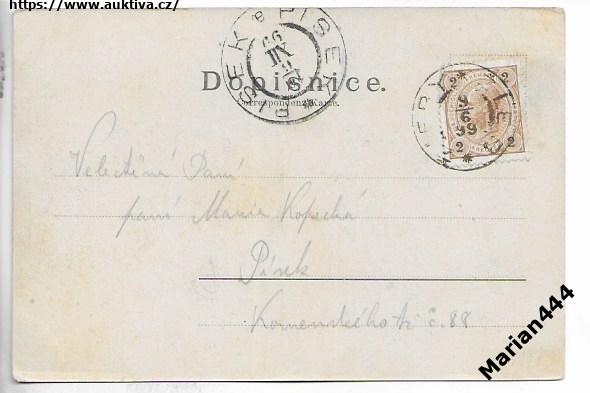 https://www.auktiva.cz/
PISEK PISEK
XII
99
Dopisnice.
Correspondenz-Karte.
2 2
2 2
9
6
99
Velectěná Paní
paní Marie Kopecká
Písek
Komenského tř. č. 88
Marian444